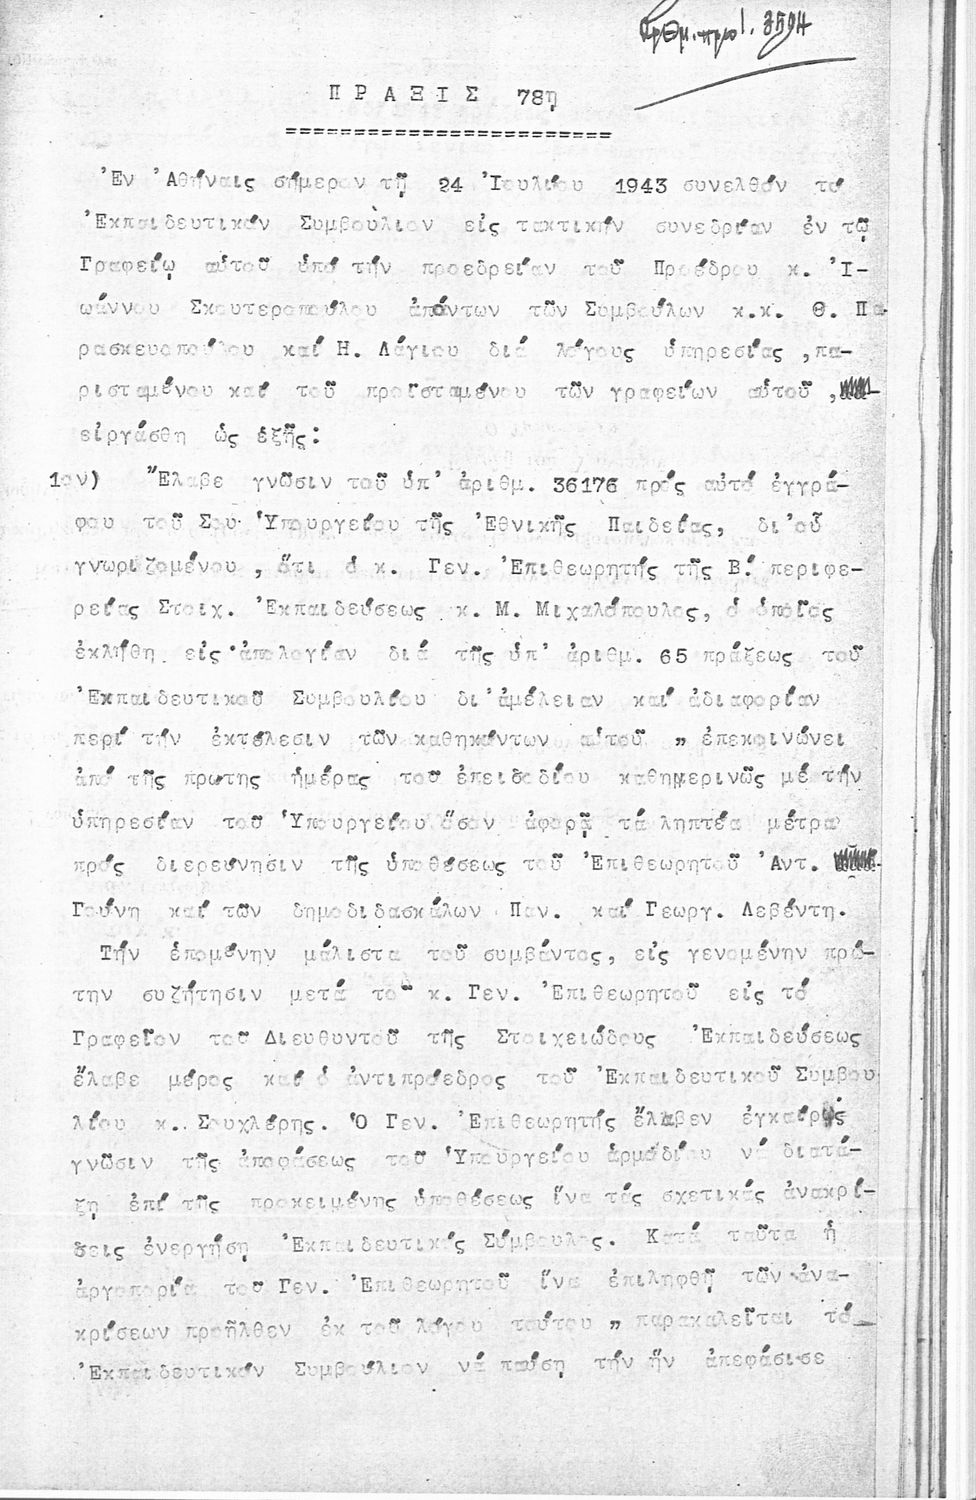 Αριθμ. πρωτ. 3594
ΠΡΑΞΙΣ 78η
========================
Ἐν Ἀθήναις σήμερον τῇ 24 Ἰουλίου 1943 συνελθόν τό
Ἐκπαιδευτικόν Συμβούλιον εἰς τακτικήν συνεδρίαν ἐν τῷ
Γραφείῳ αὑτοῦ ὑπό τήν προεδρείαν τοῦ Προέδρου κ. Ἰ-
ωάννου Σκουτεροπούλου ἀπόντων τῶν Συμβούλων κ.κ. Θ. Πα-
ρασκευοπούλου καί Η. Λάγιου διά λόγους ὑπηρεσίας ,πα-
ρισταμένου καί τοῦ προϊσταμένου τῶν γραφείων αὑτοῦ ,
εἰργάσθη ὡς ἑξῆς:
1ον) Ἔλαβε γνῶσιν τοῦ ὑπ' ἀριθμ. 36176 πρός αὐτό ἐγγρά-
φου τοῦ Σου Ὑπουργείου τῆς Ἐθνικῆς Παιδείας, δι'οὗ
γνωριζομένου , ὅτι ὁ κ. Γεν. Ἐπιθεωρητής τῆς Β! περιφε-
ρείας Στοιχ. Ἐκπαιδεύσεως κ. Μ. Μιχαλόπουλος, ὁ ὁποῖος
ἐκλήθη εἰς ἀπολογίαν διά τῆς ὑπ' ἀριθμ. 65 πράξεως τοῦ
Ἐκπαιδευτικοῦ Συμβουλίου δι'ἀμέλειαν καί ἀδιαφορίαν
περί τήν ἐκτέλεσιν τῶν καθηκόντων αὑτοῦ „ ἐπεκοινώνει
ἀπό τῆς πρωτης ἡμέρας του ἐπεισοδίου καθημερινῶς μέ τήν
ὑπηρεσίαν τοῦ Ὑπουργείου ὅσον ἀφορᾷ τά ληπτέα μέτρα
πρός διερεύνησιν τῆς ὑποθέσεως τοῦ Ἐπιθεωρητοῦ Ἀντ.
Γούνη καί τῶν δημοδιδασκάλων Παν. καί Γεωργ. Λεβέντη.
Τήν ἑπομένην μάλιστα τοῦ συμβάντος, εἰς γενομένην πρώ-
την συζήτησιν μετά τοῦ κ. Γεν. Ἐπιθεωρητοῦ εἰς τό
Γραφεῖον του Διευθυντοῦ τῆς Στοιχειώδους Ἐκπαιδεύσεως
ἔλαβε μέρος καί ὁ ἀντιπρόεδρος τοῦ Ἐκπαιδευτικοῦ Συμβου
λίου κ.. Σουχλέρης. Ὁ Γεν. Ἐπιθεωρητής ἔλαβεν ἐγκαίρως
γνῶσιν τῆς ἀποφάσεως τοῦ Ὑπουργείου ἁρμοδίου νά διατά-
ξῃ ἐπί τῆς προκειμένης ὑποθέσεως ἵνα τάς σχετικάς ἀνακρί-
σεις ἐνεργήσῃ Ἐκπαιδευτικός Σύμβουλος. Κατά ταῦτα ἡ
ἀργοπορία τοῦ Γεν. Ἐπιθεωρητοῦ ἵνα ἐπιληφθῇ τῶν ἀνα-
κρίσεων προῆλθεν ἐκ τοῦ λόγου τούτου „ παρακαλεῖται τό
Ἐκπαιδευτικόν Συμβούλιον νά παύσῃ τήν ἥν ἀπεφάσισε